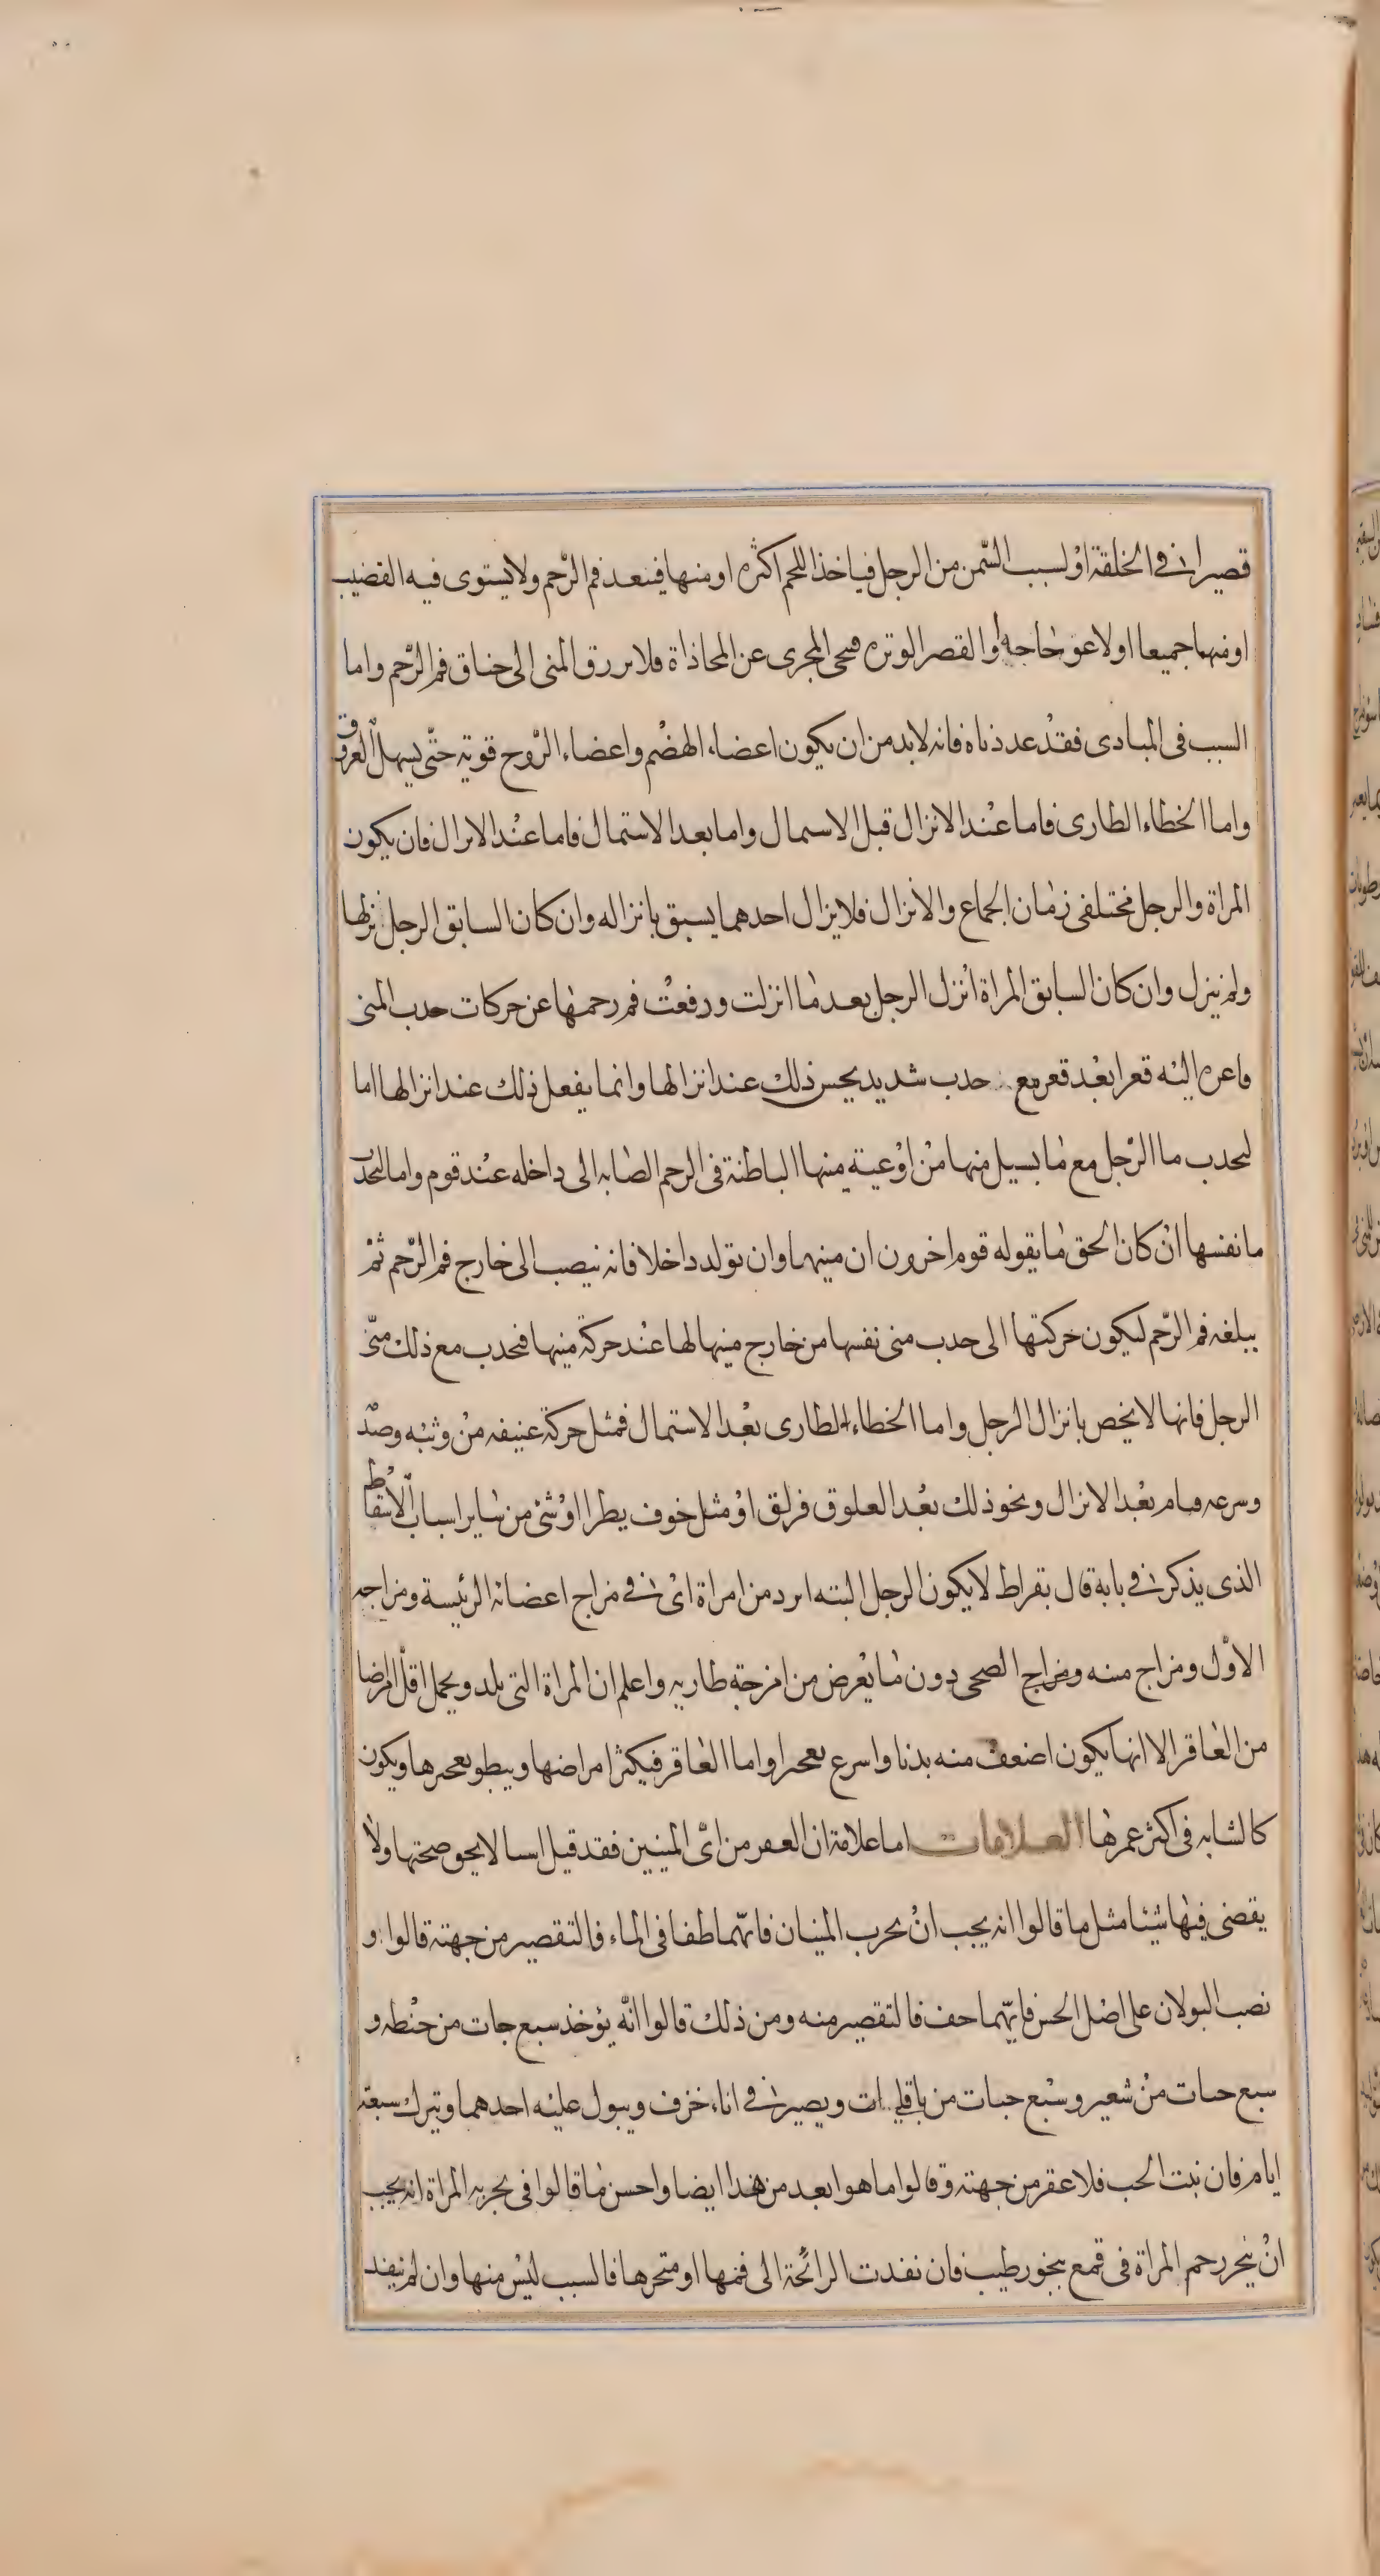 قصيرا في الخلقة او لسبب السّمن من الرجل فياخذ اللحم اكثره او منها فينعد فم الرّحم ولا يستوى فيه القضيب
او منهما جميعا اولاعوحاجه او القصر الوتره محى المجرى عن المحاذاة فلا ىررق المنى الى حناق فم الرّحم واما
السبب فى المبادى فقد عددناه فانه لابد من ان يكون اعضاء الهضم واعضاء الرّوح قوية حتّى يسهل العروق
واما الخطاء الطارى فاما عند الانزال قبل الاسمال واما بعد الاستمال فاما عند الانرال فان يكون
المراة والرجل مختلفى زمان الجماع والانزال فلا يزال احدهما يسبق بانزاله وان كان السابق الرجل نزلها
ولم ينزل وان كان السابق المراة انزل الرجل بعد ما انزلت ورفعت فم رحمها عن حركات حدب المنى
فاعره اليه قعرا بعد قعر مع حدب شديد يحس ذلك عند انزالها وانما يفعل ذلك عند انزالها اما
لىحدب ما الرّجل مع ما يسيل منها من اوعية منها الباطنة فى الرحم الصابه الى داخله عند قوم واما لىحدب
ما نفسها ان كان الحق ما يقوله قوم اخرون ان منيها وان تولد داخلا فانه ينصب الى خارج فم الرّحم ثم
يبلغه فم الرّحم ليكون حركتها الى حدب منى نفسها من خارج منيها لها عند حركة منيها فىحدب مع ذلك منىّ
الرجل فانها لا يخص بانزال الرجل واما الخطاء الطارى بعد الاستمال فمثل حركة عنيفه من وثبه وصدّ
وسرعه قيام بعد الانزال ونحو ذلك بعد العلوق فزلق او مثل خوف يطرا او شئ من ساير اسباب الاسقاط
الذى يذكر في بابة قال بقراط لا يكون الرجل البته ابرد من امراة اى في مزاج اعضائه الرئيسة ومزاجه
الاوّل ومزاج منيه ومزاج الصحى دون ما يعرض من امزجة طاريه واعلم ان المراة التى يلد ويحمل اقلّ امراضا
من العاقر الا انها يكون اضعف منه بدنا واسرع ىعحىرا واما العاقر فيكثر امراضها ويبطو ىعحىرها ويكون
كالشابه فى اكثر عمرها العلامات اما علامة ان العقر من اىّ المنيين فقد قيل اسا لا يحو صحتها ولا
يقضى فيها شيئا مثل ما قالوا انه يجب ان ىحرب المنيان فايّهما طفا فى الماء فالتقصير من جهته قالوا و
نصب البولان على اصل الخس فايّهما حف فالتقصير منه ومن ذلك قالوا انّه يؤخذ سبع حبات من حنطه و
سبع حبات من شعير وسبع حبات من باقلى ات ويصير في اناء خزف ويبول عليه احدهما ويترك سبعة
ايام فان نبت الحب فلا عقر من جهته وقالوا ما هو ابعد من هذا ايضا واحسن ما قالوا فى ىجربه المراة انه يجب
ان يبخر رحم المراة فى قمع ببخور طيب فان نفدت الرائحة الى فمها او منخرها فالسبب ليس منها وان لم ينفد